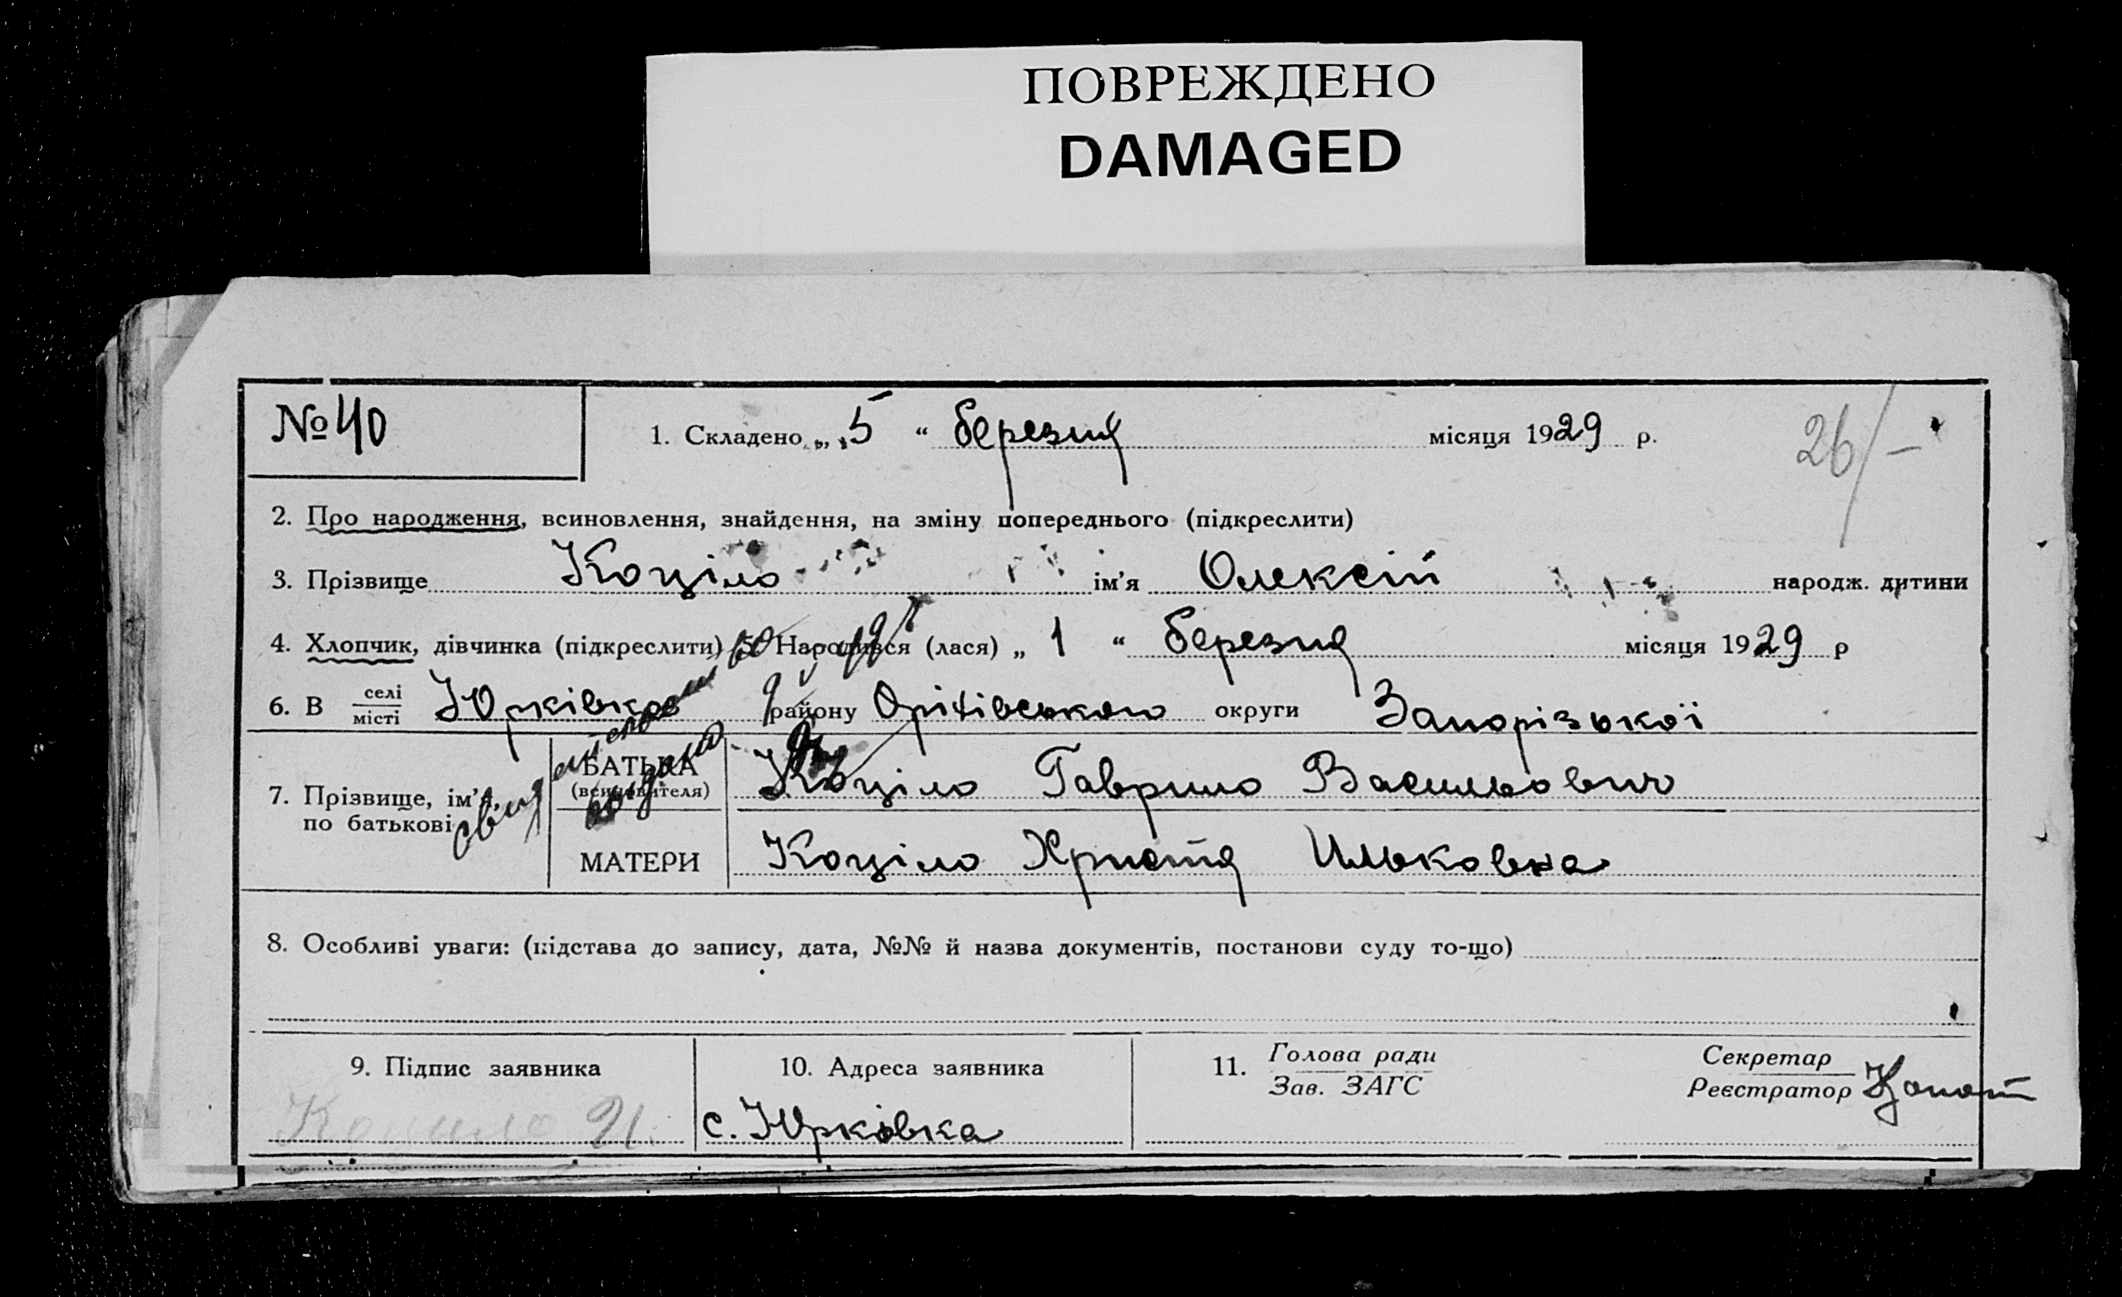 ПОВРЕЖДЕНО
DAMAGED
№ 40
1. Складено „ 5 “ березня місяця 1929 р.
26/-
2. Про народження, всиновлення, знайдення, на зміну попереднього (підкреслити)
3. Прізвище Коціло ім'я Олексій народж. дитини
4. Хлопчик, дівчинка (підкреслити) 5. Народився (лася) „ 1 “ березня місяця 1929 р
6. В селі/місті Юрківка району Оріхівського округи Запорізької
7. Прізвище, ім'я, по батькові
БАТЬКА (всиновителя) Коціло Гаврило Васильович
МАТЕРИ Коціло Христя Ильковна
8. Особливі уваги: (підстава до запису, дата, №№ й назва документів, постанови суду то-що)
9. Підпис заявника
10. Адреса заявника
11. Голова ради / Зав. ЗАГС
Секретар / Реєстратор
с. Юрківка